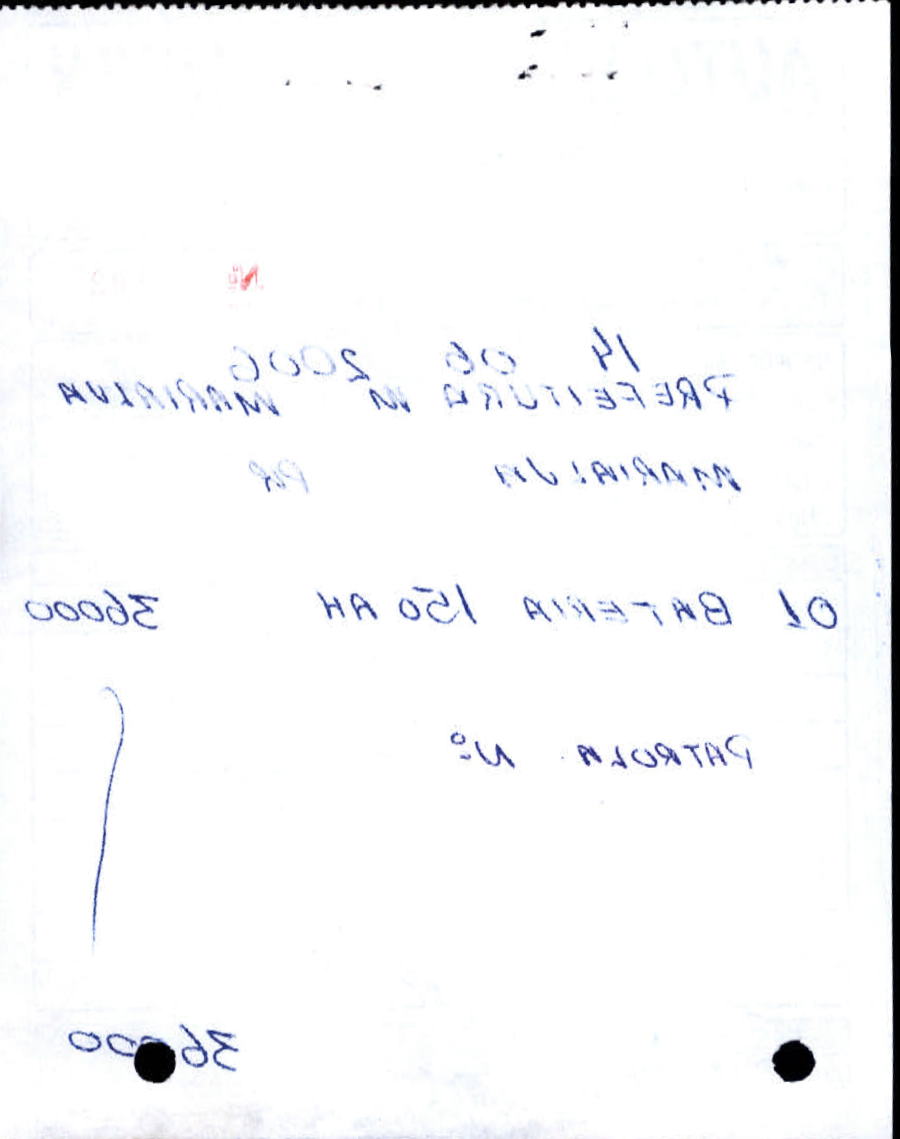 Nº
14 06 2006
PREFEITURA M MARIALVA
MARIALVA PR
01 BATERIA 150 AH 36000
PATROLA Nº
36000